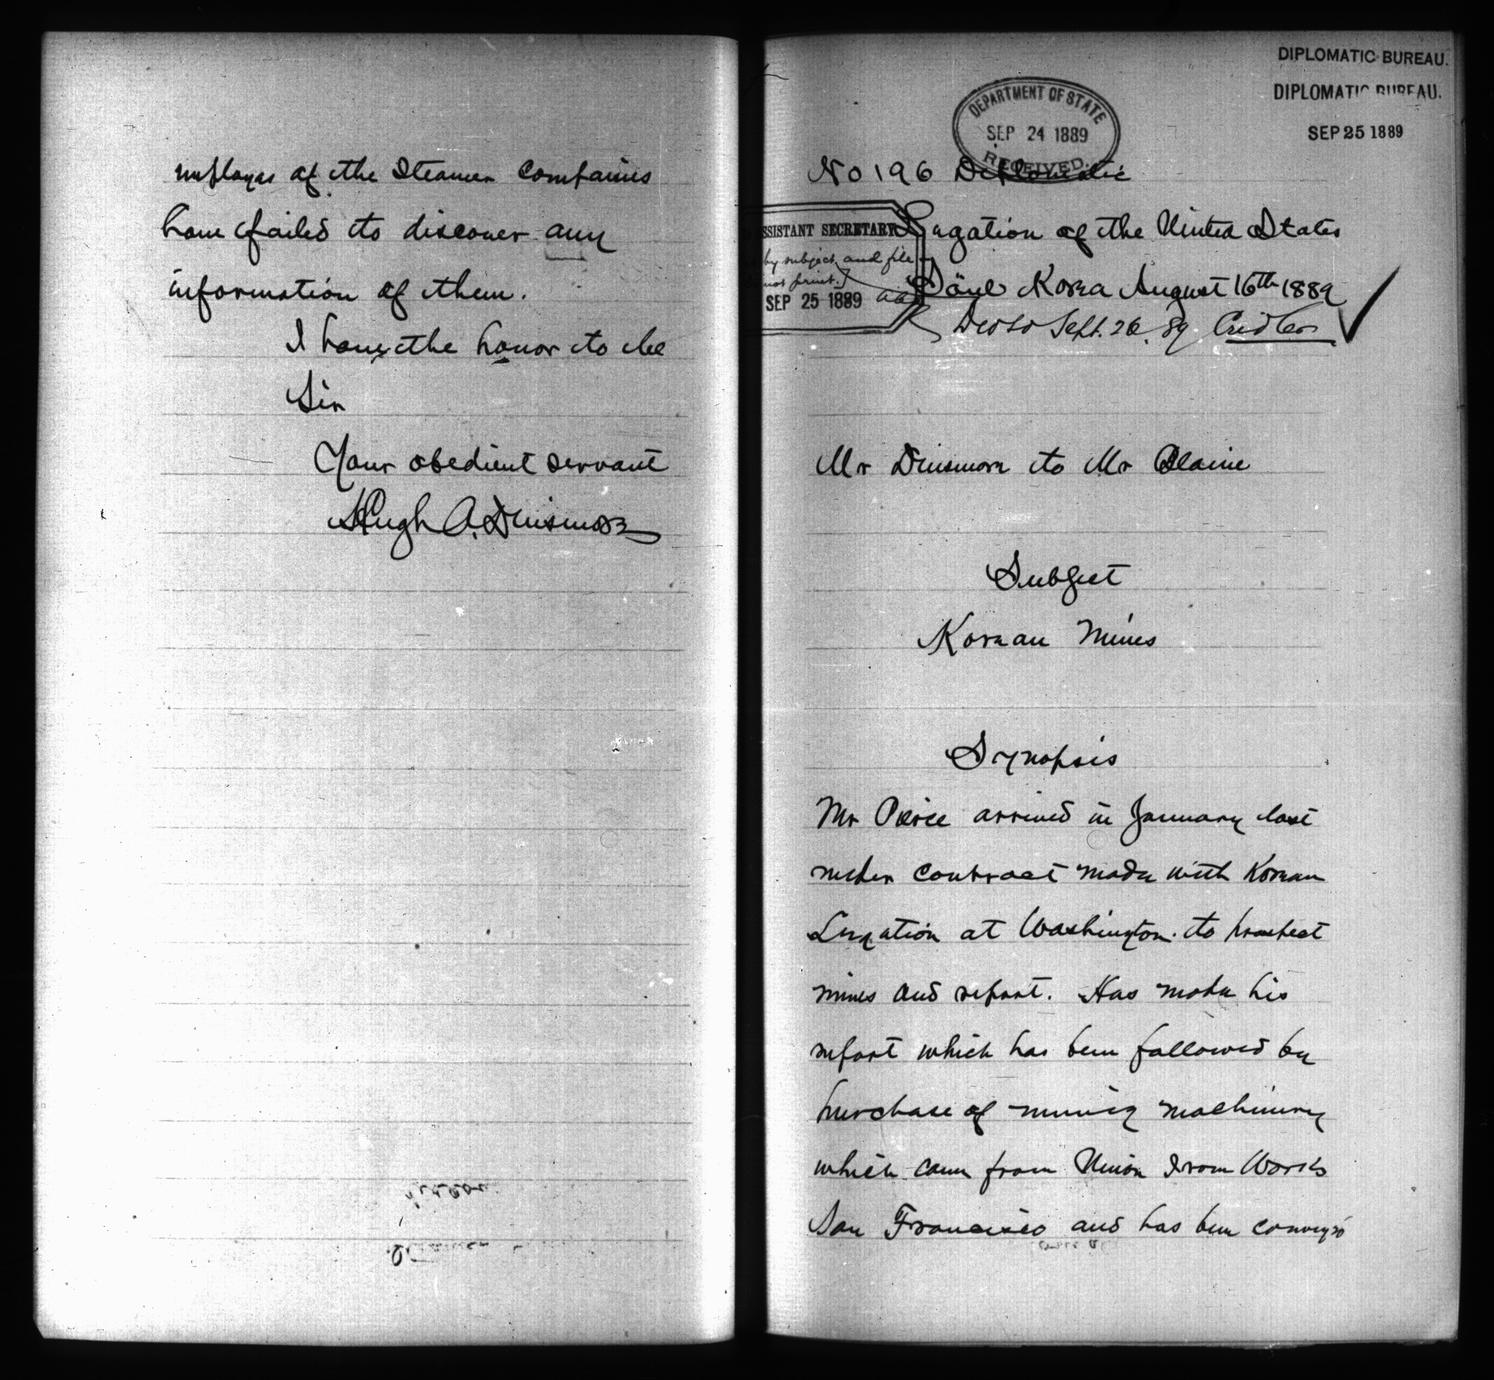 employes of the Steamer Companies
have failed to discover any
information of them.
I have the honor to be
Sir
Your obedient servant
Hugh A. Dinsmore
DIPLOMATIC BUREAU.
DIPLOMATIC BUREAU.
SEP 25 1889
DEPARTMENT OF STATE
SEP 24 1889
RECEIVED.
No 196 Diplomatic
ASSISTANT SECRETARY
by subject and file
not print.]
SEP 25 1889
Legation of the United States
Söul Korea August 16th 1889
Sept. 26. 89. Cridler
Mr Dinsmore to Mr Blaine
Subject
Korean Mines
Synopsis
Mr Pierce arrived in January last
under contract made with Korean
Legation at Washington to prospect
mines and report. Has made his
report which has been followed by
purchase of mining machinery
which came from Union Iron Works
San Francisco and has been conveyed